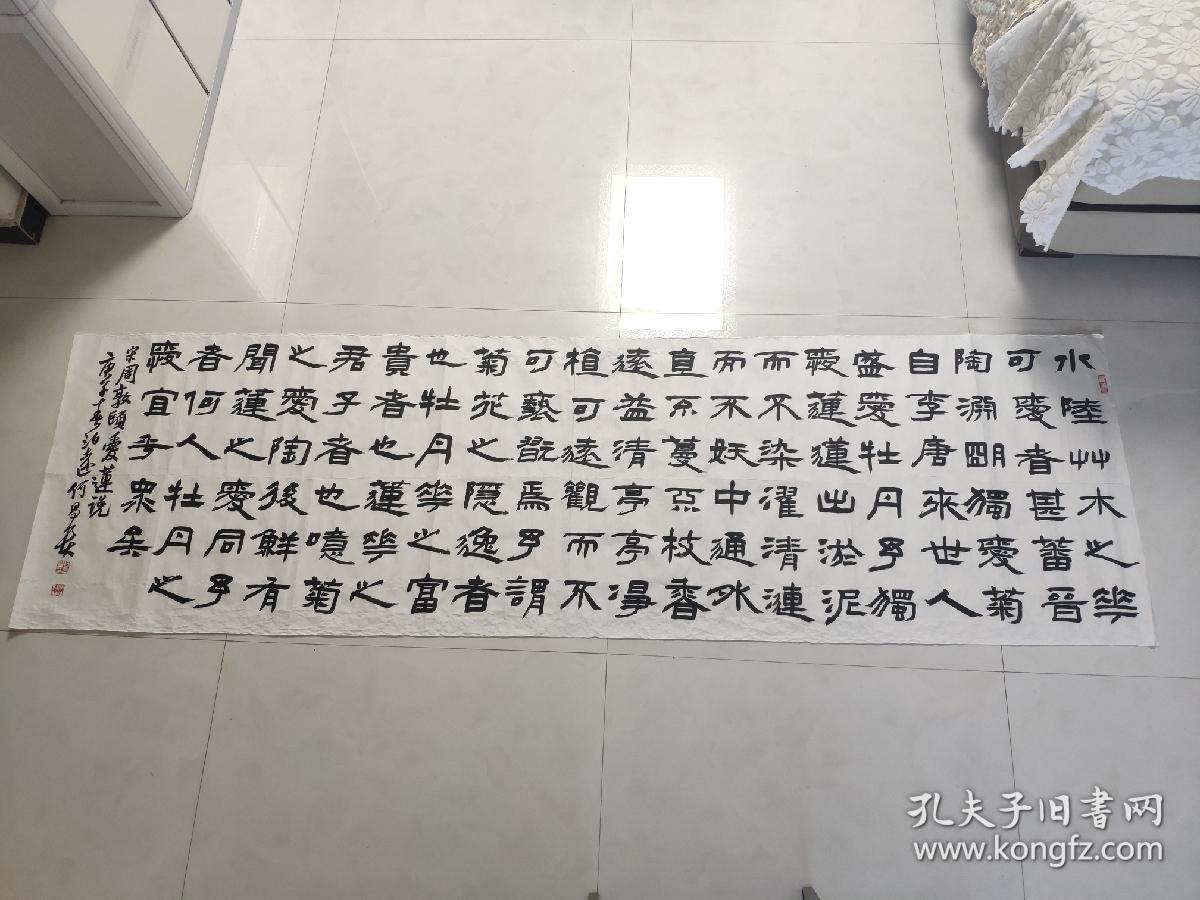 水陸艸木之華
可愛者甚蕃晉
陶淵明獨愛菊
自李唐來世人
盛愛牡丹予獨
愛蓮蓮出淤泥
而不染濯清漣
而不妖中通外
直不蔓不枝香
遠益清亭亭淨
植可遠觀而不
可藝翫焉予謂
菊花之隱逸者
也牡丹華之富
貴者也蓮華之
君子者也噫菊
之愛陶後鮮有
聞蓮之愛同予
者何人牡丹之
愛宜乎眾矣
宋周敦頤愛蓮説
庚子年春
孔夫子旧书网
www.kongfz.com